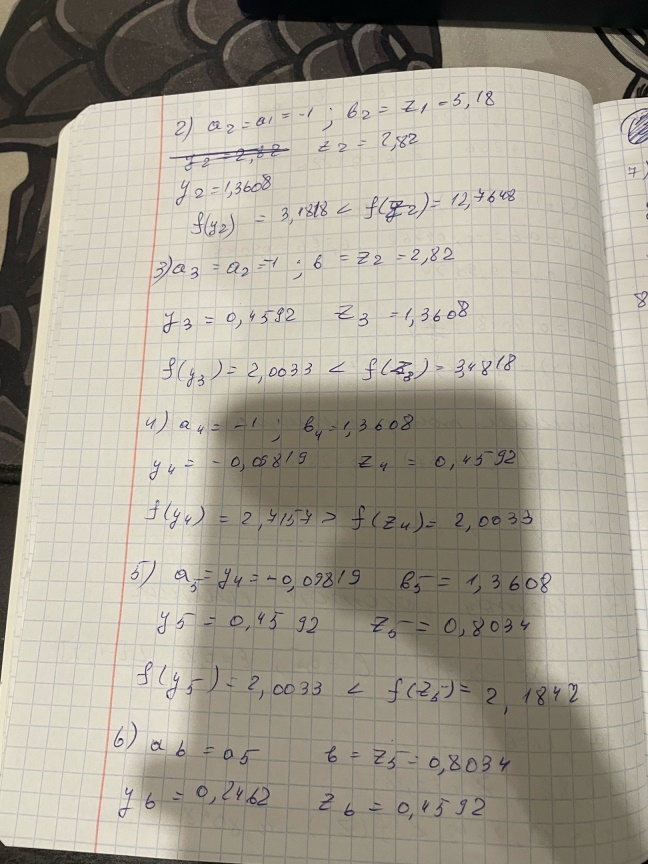 2) a₂ = a₁ = -1 ; b₂ = z₁ = 5,18
y₂ = 2,82 z₂ = 2,82
y₂ = 1,3608
f(y₂) = 3,1818 < f(z₂) = 12,7648
3) a₃ = a₂ = -1 ; b = z₂ = 2,82
y₃ = 0,4592 z₃ = 1,3608
f(y₃) = 2,0033 < f(z₃) = 3,4818
4) a₄ = -1 ; b₄ = 1,3608
y₄ = -0,09819 z₄ = 0,4592
f(y₄) = 2,7157 > f(z₄) = 2,0033
5) a₅ = y₄ = -0,09819 b₅ = 1,3608
y₅ = 0,4592 z₅ = 0,8034
f(y₅) = 2,0033 < f(z₅) = 2,1842
6) a₆ = a₅ b = z₅ = 0,8034
y₆ = 0,2462 z₆ = 0,4592
7)
8